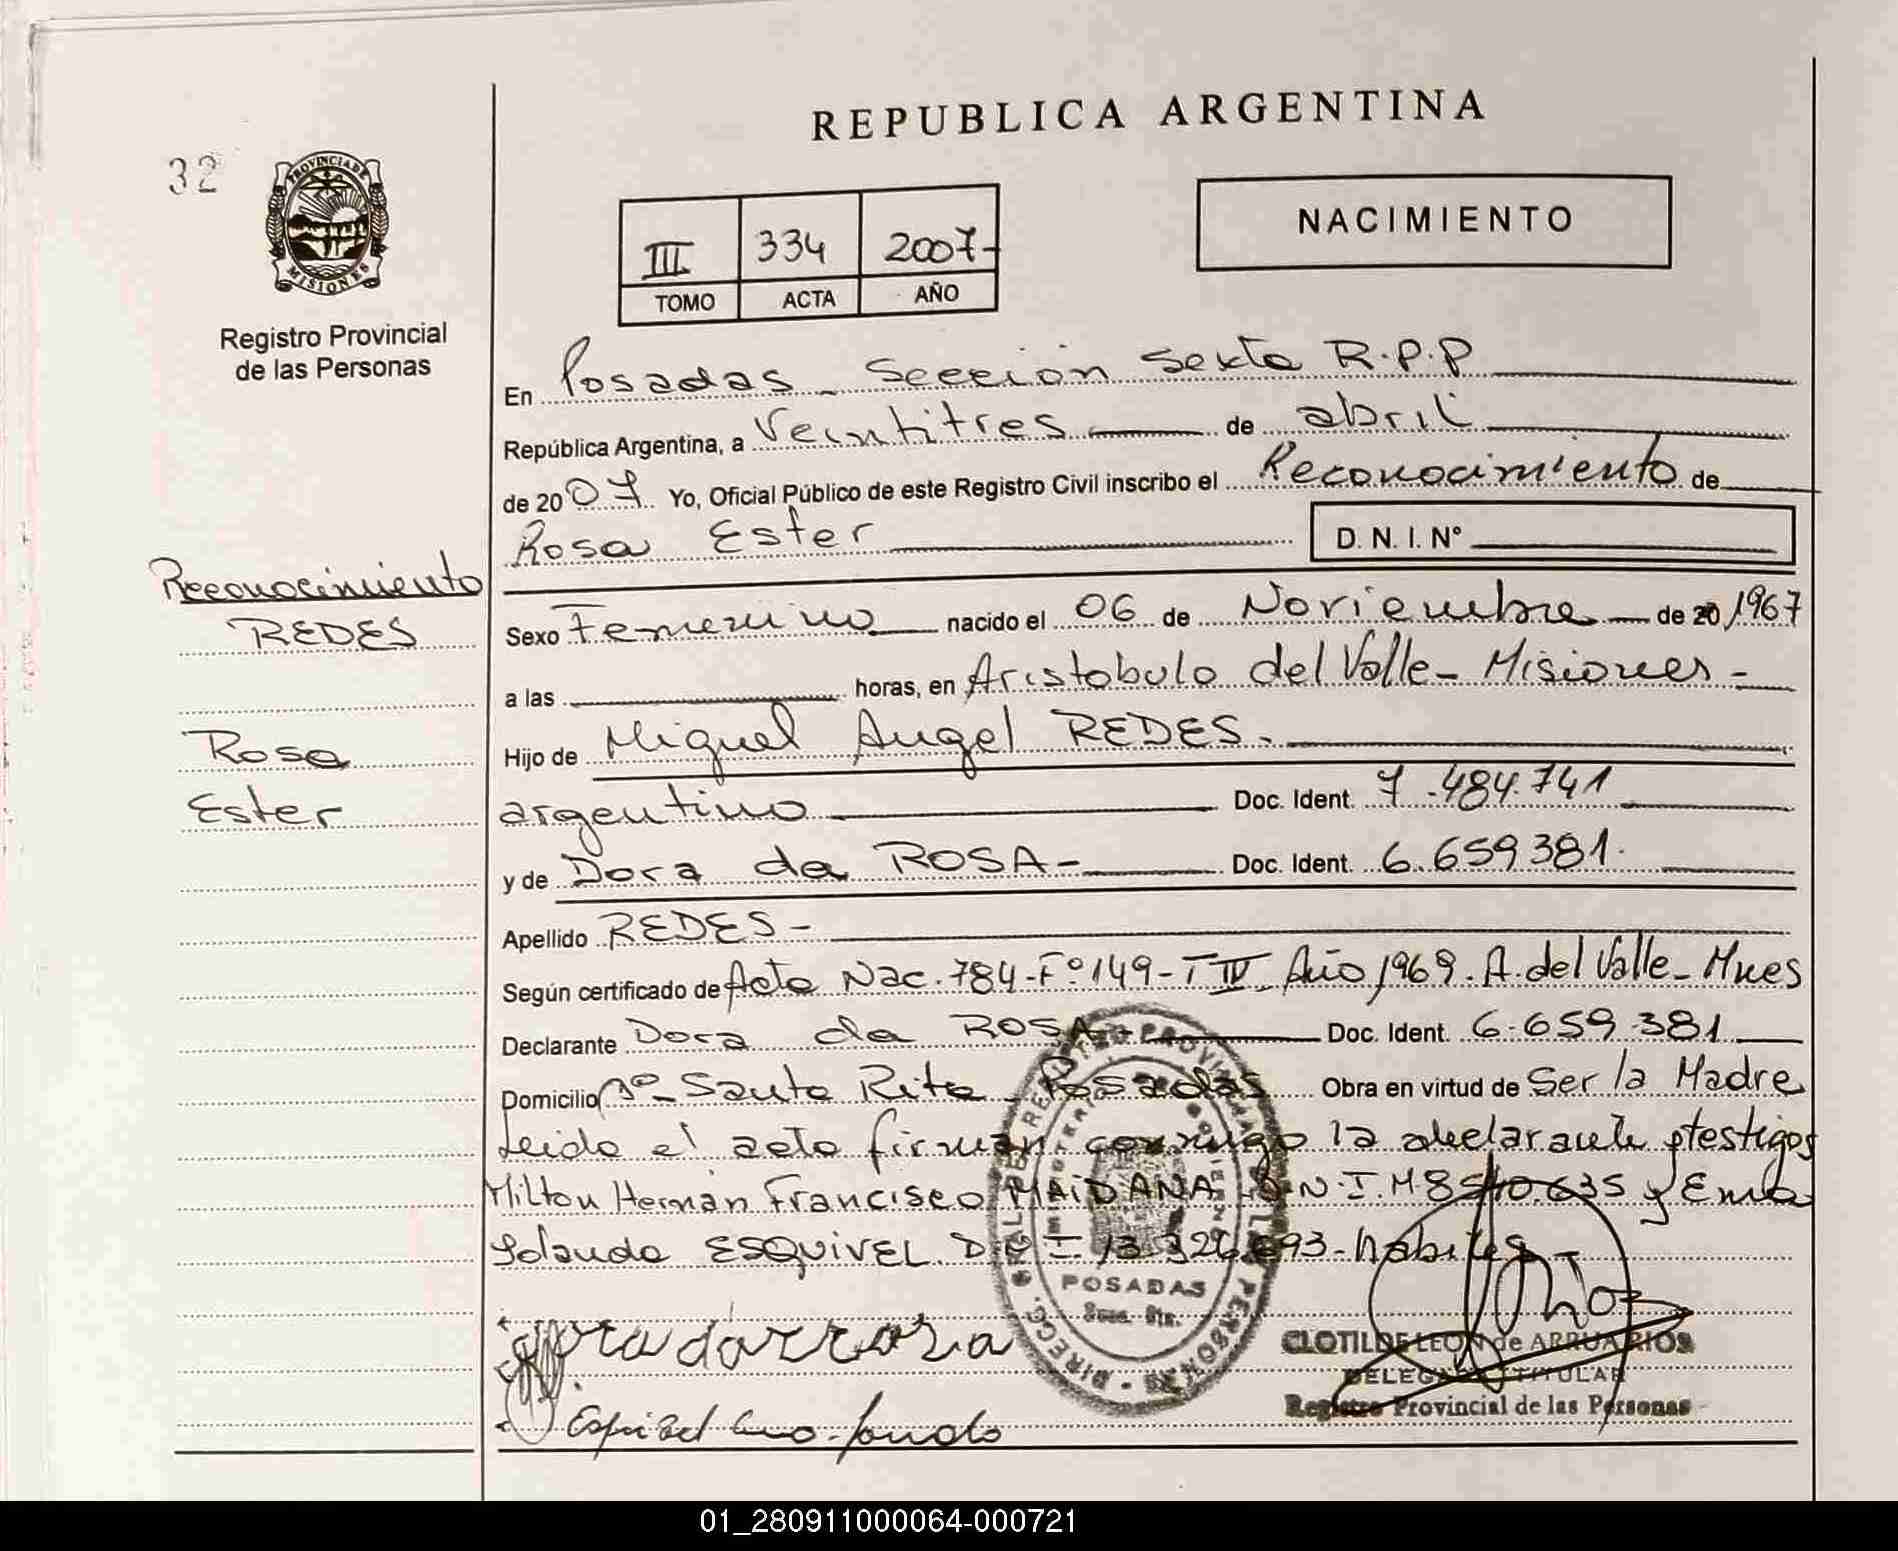 REPUBLICA ARGENTINA
32
PROVINCIA DE
MISIONES
Registro Provincial
de las Personas
III 334 2007-
TOMO ACTA AÑO
NACIMIENTO
En Posadas - Sección Sexta R.P.P
República Argentina, a Veintitres de abril
de 2007 Yo, Oficial Público de este Registro Civil inscribo el Reconocimiento de
Rosa Ester D. N. I. Nº
Reconocimiento
REDES
Rosa
Ester
Sexo Femenino nacido el 06 de Noviembre de 20 1967
a las horas, en Aristobulo del Valle - Misiones -
Hijo de Miguel Angel REDES.
argentino Doc. Ident. 7.484.741
y de Dora da ROSA - Doc. Ident. 6.659381.
Apellido REDES -
Según certificado de Acta Nac. 784-Fº149-T IV Año 1969. A. del Valle - Mnes
Declarante Dora da ROSA - Doc. Ident. 6.659.381
Domicilio Bº - Santa Rita - Posadas Obra en virtud de Ser la Madre
Leida el acta firman conmigo la declarante y testigos
Milton Hernán Francisco MAIDANA D.N.I. M8540.635 y Ema
Yolanda ESQUIVEL D.N.I. 13.326.693 - habiles -
POSADAS
CLOTILDE LEON de ARRUA RIOS
DELEGADA TITULAR
Registro Provincial de las Personas
01_280911000064-000721